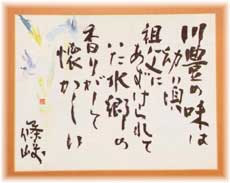 川豊の味は
幼い頃
祖父に
あずけられて
いた水郷の
香りがして
懐かしい